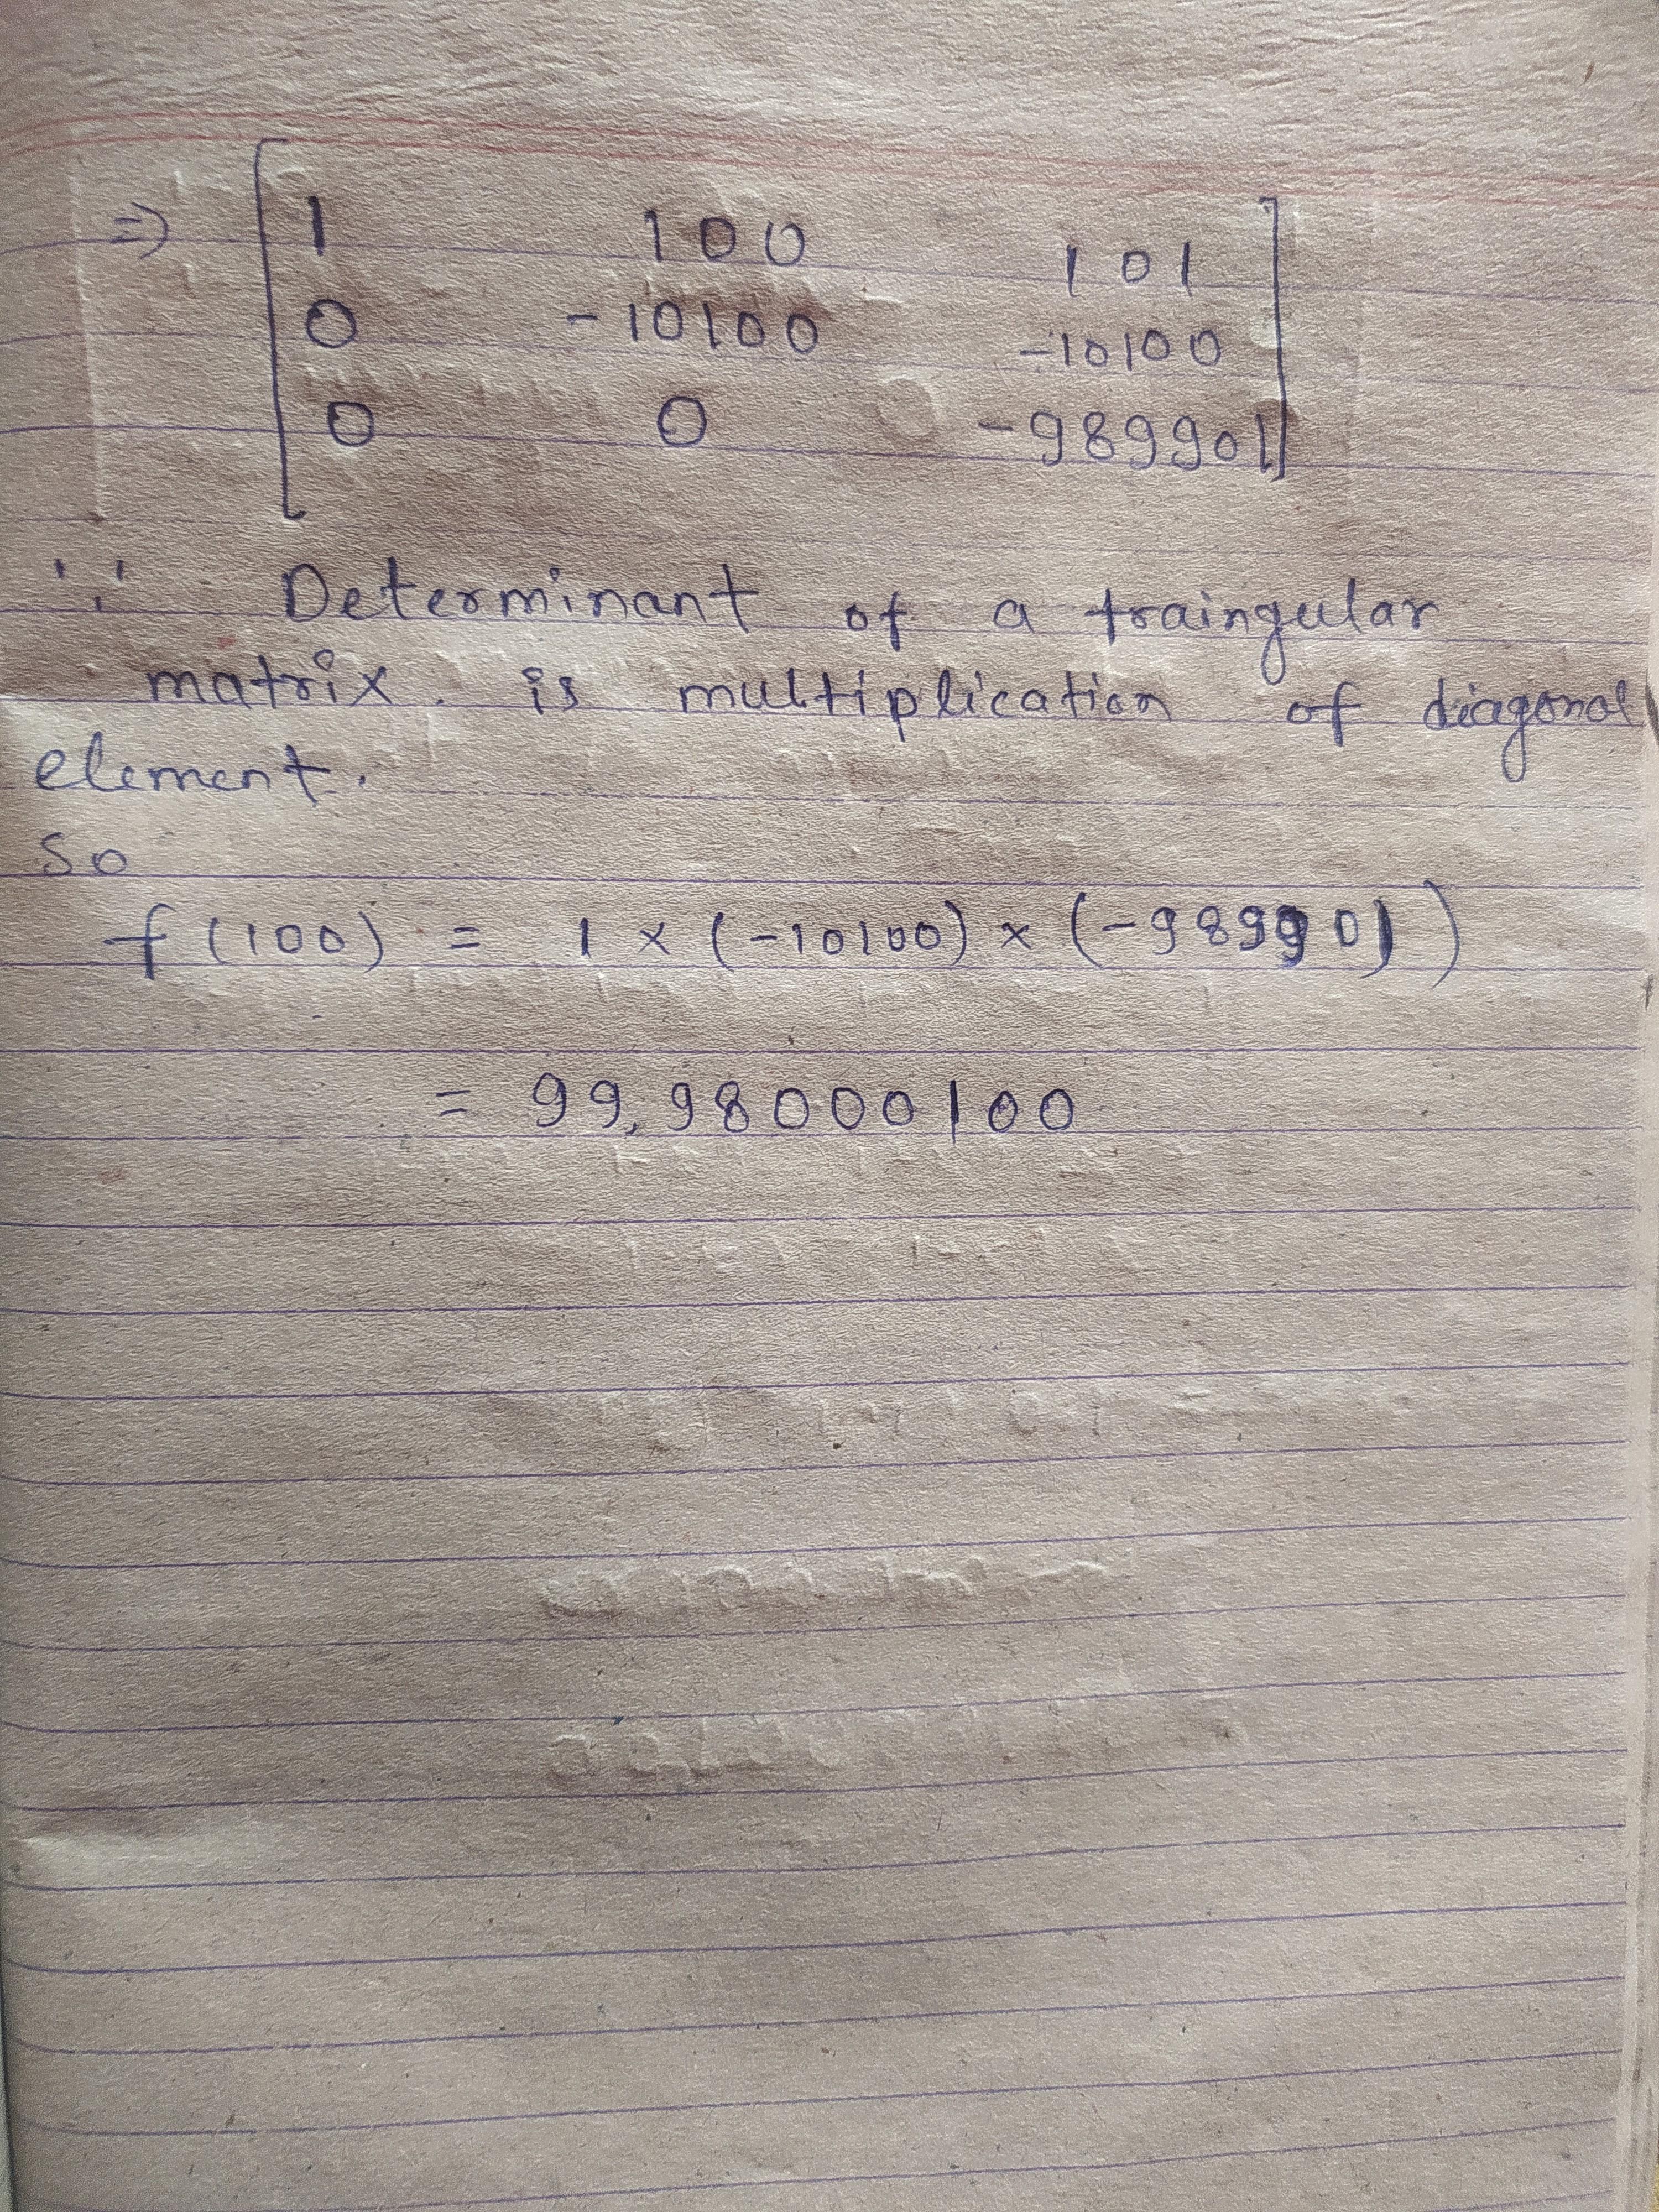 ⇒ [ 1 100 101
0 -10100 -10100
0 0 -989901 ]
∵ Determinant of a traingular
matrix. is multiplication of diagonal
element.
So
f(100) = 1 × (-10100) × (-989901)
= 99,98000100